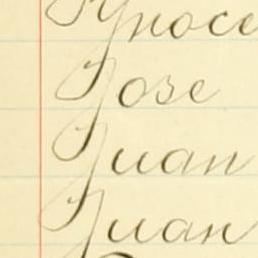 Ynoce
Jose
Juan
Juan